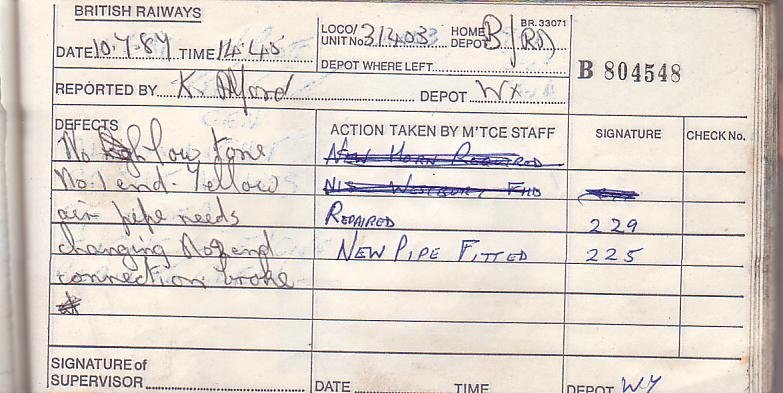 BRITISH RAIWAYS
BR. 33071
DATE 10.7.87 TIME 14.45 LOCO/ UNIT No. HOME DEPOT B/RD
DEPOT WHERE LEFT
B 804548
REPORTED BY K. Alford DEPOT WX
DEFECTS ACTION TAKEN BY M'TCE STAFF SIGNATURE CHECK No.
No low tone NEW HORN REQUIRED
No.1 end. Yellow NIS WESTBURY FHD
air pipe needs REPAIRED 229
changing No2 end NEW PIPE FITTED 225
connection broke
SIGNATURE of
SUPERVISOR DATE TIME DEPOT WY